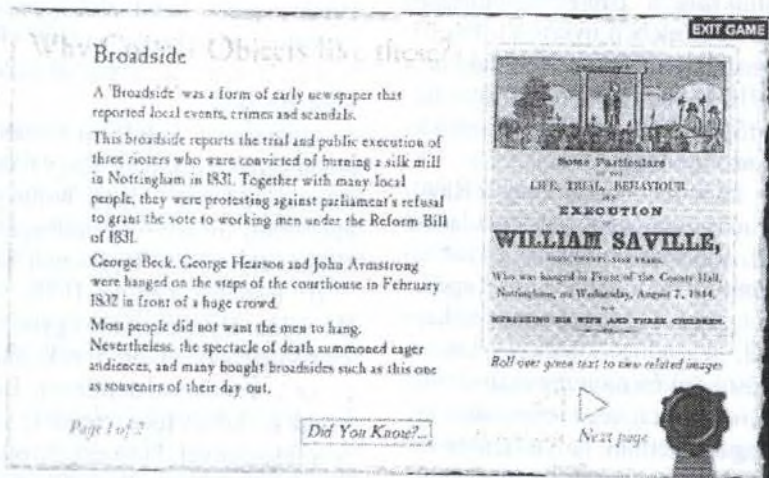 EXIT GAME
Why Collect Objects like these?
Broadside
A 'Broadside' was a form of early newspaper that
reported local events, crimes and scandals.
This broadside reports the trial and public execution of
three rioters who were convicted of burning a silk mill
in Nottingham in 1831. Together with many local
people, they were protesting against parliament's refusal
to grant the vote to working men under the Reform Bill
of 1831.
George Beck, George Hearson and John Armstrong
were hanged on the steps of the courthouse in February
1832 in front of a huge crowd.
Most people did not want the men to hang.
Nevertheless, the spectacle of death summoned eager
audiences, and many bought broadsides such as this one
as souvenirs of their day out.
Page 1 of 2
Did You Know?...
Some Particulars
OF THE
LIFE, TRIAL, BEHAVIOUR
AND
EXECUTION
OF
WILLIAM SAVILLE,
Who was hanged in Front of the County Hall,
Nottingham, on Wednesday, August 7, 1844,
FOR
MURDERING HIS WIFE AND THREE CHILDREN.
Roll over green text to view related images
Next page